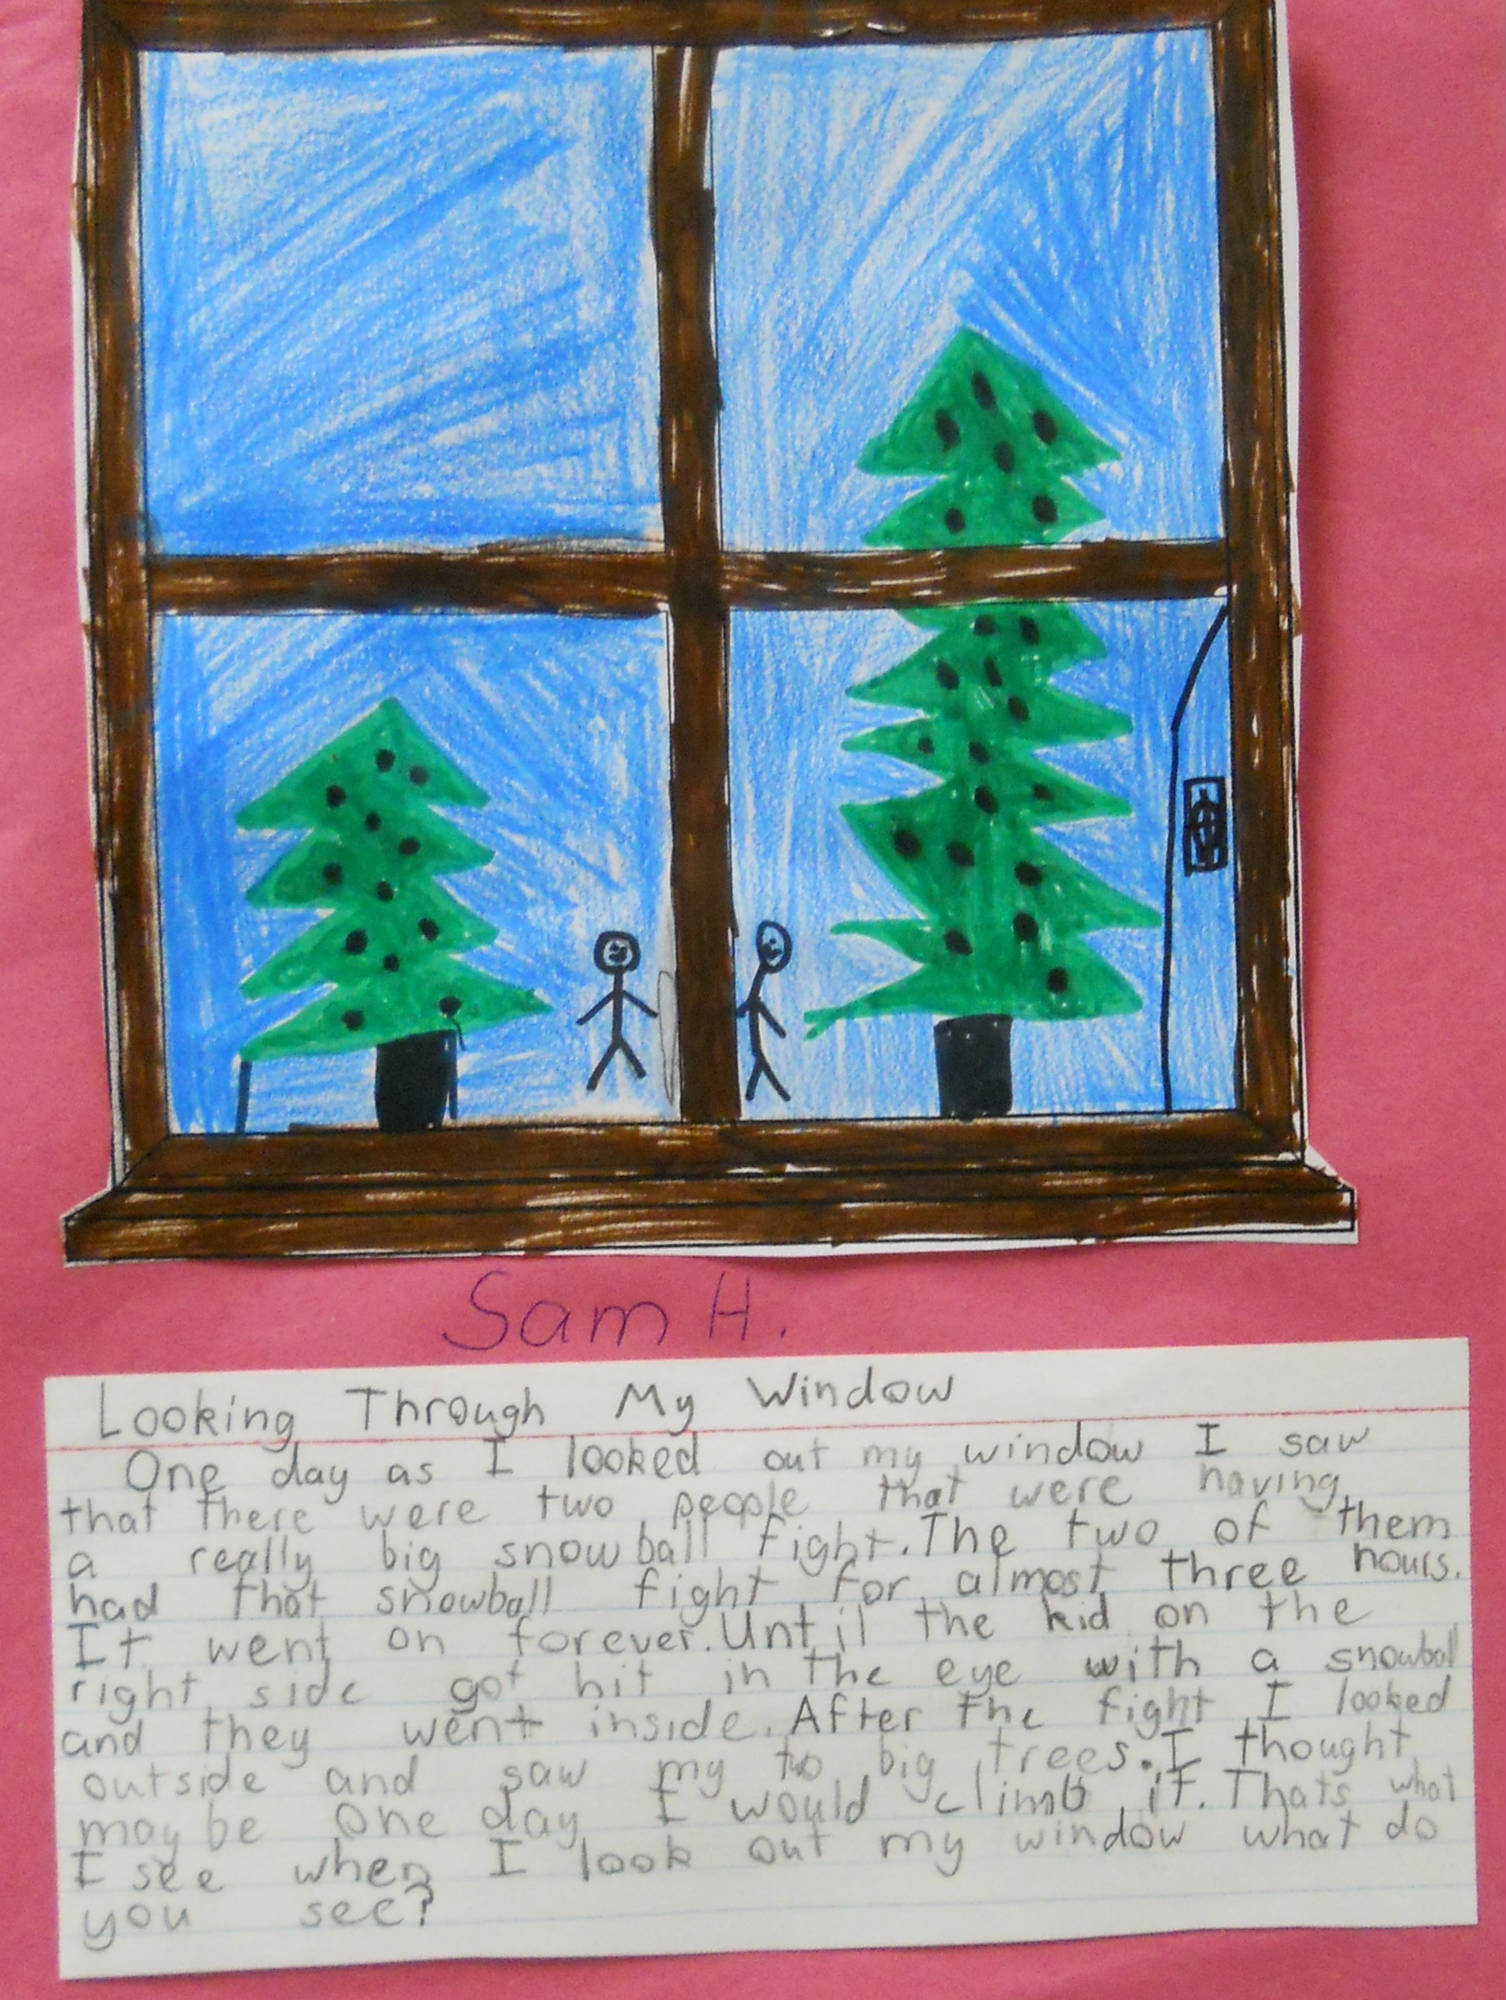 Sam H.
Looking Through My Window
One day as I looked out my window I saw
that there were two people that were having
a really big snowball fight. The two of them
had that snowball fight for almost three hours.
It went on forever. Until the kid on the
right side got hit in the eye with a snowball
and they went inside. After the fight I looked
outside and saw my two big trees. I thought
maybe one day I would climb it. Thats what
I see when I look out my window what do
you see?